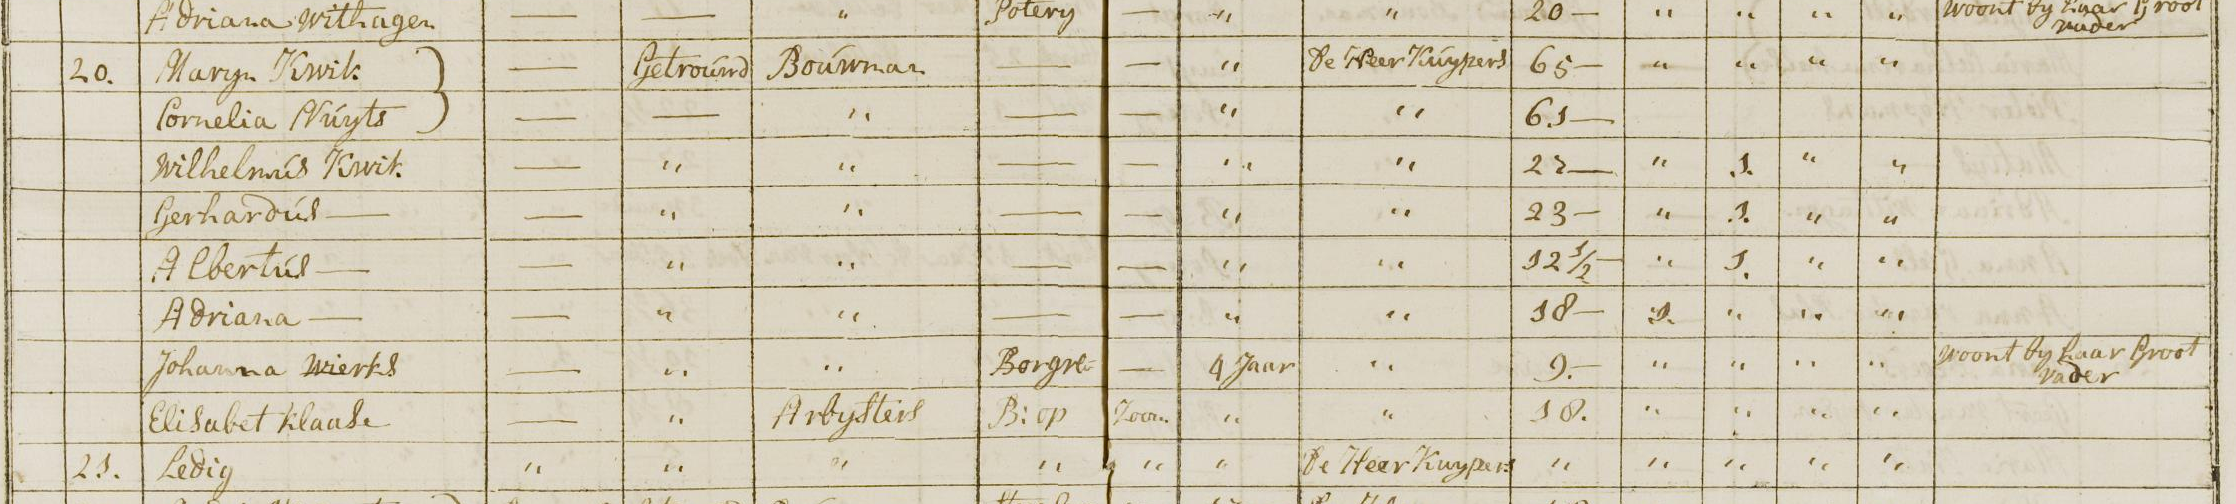 Adriana Withagen — — " Potery — " " 20 — " " " " woont by haar Groot
vader
20. Maryn Kwik — Getrouwd Bouwman — — " De Heer Kuypers 65 — " " " "
Cornelia Nuyts — — " — — " " 61 —
Wilhelmus Kwik — " " — — " " 27 — " 1. " "
Gerhardus — — " " — — " " 23 — " 1. " "
Albertus — — " " — — " " 12 1/2 — " 1. " "
Adriana — — " " — — " " 18 — 1. " " "
Johanna Wierks — " " Borgvl — 4 Jaar " 9. — " " " " woont by haar Groot
vader
Elisabet Klaase — " Arbysters B: op Zoom " " 18. " " " "
21. Ledig " " " " " " De Heer Kuypers " " " " "